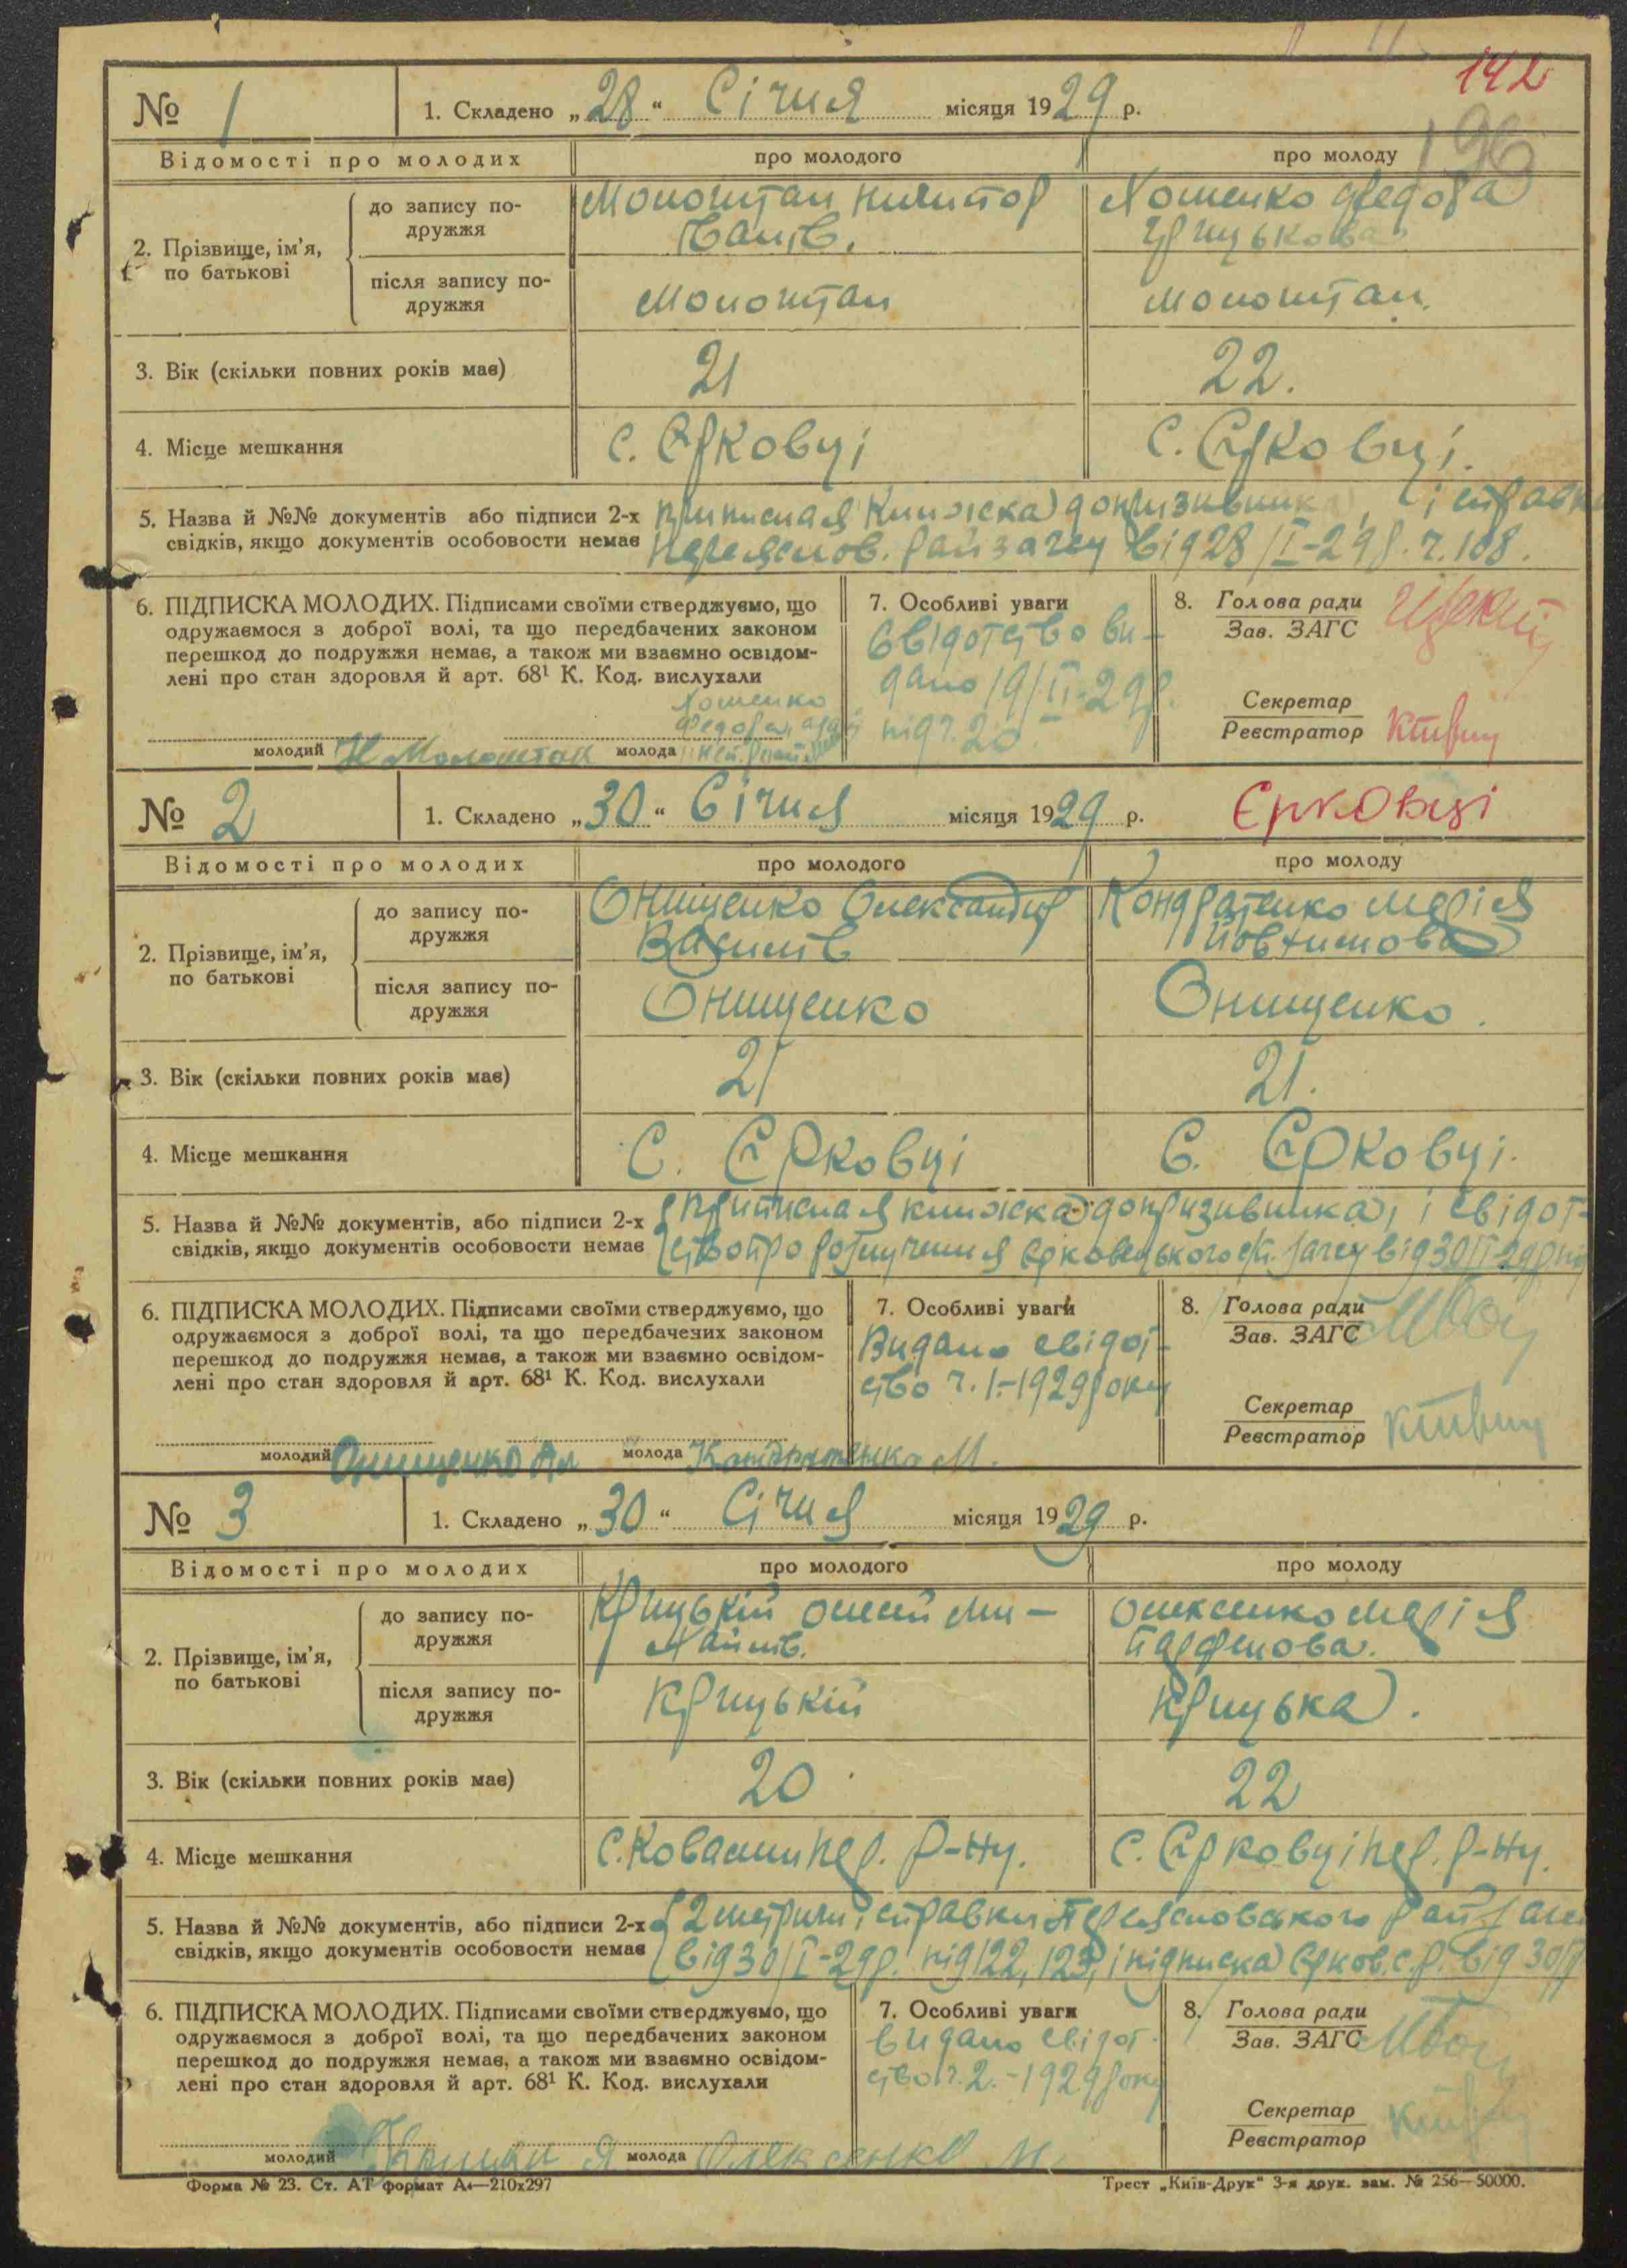 142
196
№ 1
1. Складено „28“ Січня місяця 1929 р.
Відомості про молодих
про молодого
про молоду
2. Прізвище, ім’я, по батькові
до запису подружжя
Молоштан Никифор
Хоменко Федора
Грицькова
після запису подружжя
Молоштан
Молоштан.
3. Вік (скільки повних років має)
21
22.
4. Місце мешкання
с. Єрковці
с. Єрковці.
5. Назва й №№ документів або підписи 2-х
свідків, якщо документів особовости немає
приписная книжка допризивника, і справка
Переяслов. Райзагсу від 28/I-29р. ч. 108.
6. ПІДПИСКА МОЛОДИХ. Підписами своїми стверджуємо, що
одружаємося з доброї волі, та що передбачених законом
перешкод до подружжя немає, а також ми взаємно освідом-
лені про стан здоровля й арт. 68¹ К. Код. вислухали
Хоменко
Федора
молодий Н Молоштан молода
7. Особливі уваги
Свідотство ви-
дано 19/II-29р.
під ч. 20
8. Голова ради
Зав. ЗАГС
Секретар
Реєстратор
№ 2
1. Складено „30“ Січня місяця 1929 р.
Єрковці
Відомості про молодих
про молодого
про молоду
2. Прізвище, ім’я, по батькові
до запису подружжя
Онищенко Олександр
Василів
Кондратенко Марія
Йовхимова
після запису подружжя
Онищенко
Онищенко.
3. Вік (скільки повних років має)
21
21.
4. Місце мешкання
С. Єрковці
С. Єрковці.
5. Назва й №№ документів, або підписи 2-х
свідків, якщо документів особовости немає
приписная книжка допризивника, і свідот-
ство про розлучення Єрковецького
6. ПІДПИСКА МОЛОДИХ. Підписами своїми стверджуємо, що
одружаємося з доброї волі, та що передбачених законом
перешкод до подружжя немає, а також ми взаємно освідом-
лені про стан здоровля й арт. 68¹ К. Код. вислухали
молодий Онищенко Ол молода Кондратенко М.
7. Особливі уваги
Видано свідот-
ство ч. 1.-1929 року
8. Голова ради
Зав. ЗАГС
Секретар
Реєстратор
№ 3
1. Складено „30“ Січня місяця 1929 р.
Відомості про молодих
про молодого
про молоду
2. Прізвище, ім’я, по батькові
до запису подружжя
Крицькій Олексій Ми-
хайлів.
Олексенко Марія
Парфенова.
після запису подружжя
Крицькій
Крицька.
3. Вік (скільки повних років має)
20
22
4. Місце мешкання
С. Ковалин Пер. р-ну.
С. Єрковці Пер. р-ну.
5. Назва й №№ документів, або підписи 2-х
свідків, якщо документів особовости немає
2 метрики, справки Переясловського Райзагсу
від 30/I-29р. під 122, 123, і підписка Єрков. с.р. від 30/I
6. ПІДПИСКА МОЛОДИХ. Підписами своїми стверджуємо, що
одружаємося з доброї волі, та що передбачених законом
перешкод до подружжя немає, а також ми взаємно освідом-
лені про стан здоровля й арт. 68¹ К. Код. вислухали
молодий молода Олексенко М.
7. Особливі уваги
видано свідот-
ство ч. 2.-1929 року
8. Голова ради
Зав. ЗАГС
Секретар
Реєстратор
Форма № 23. Ст. АТ формат А4—210х297
Трест „Київ-Друк“ 3-я друк. зам. № 256—50000.